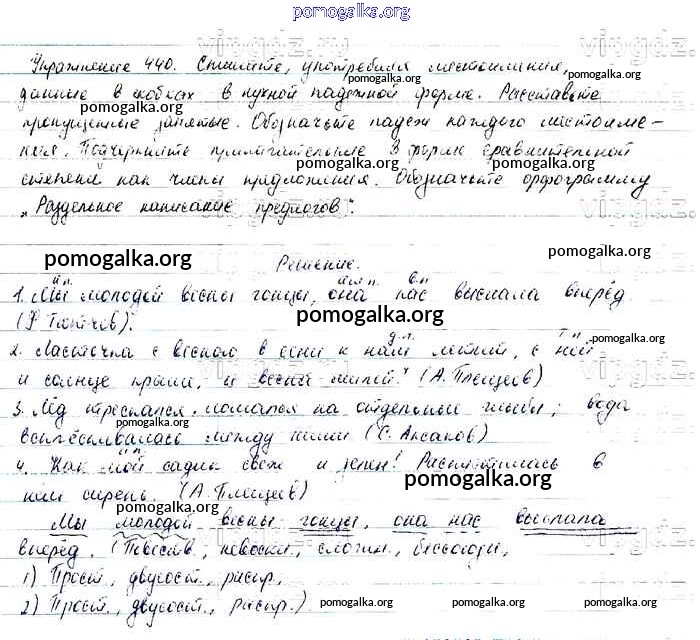 pomogalka.org
Упражнение 440. Спишите, употребляя местоимения,
pomogalka.org
данные в скобках в нужной падежной форме. Расставьте
pomogalka.org
пропущенные запятые. Обозначьте падеж каждого местоиме-
ния. Подчеркните прилагательные в форме сравнительной
pomogalka.org pomogalka.org
степени как члены предложения. Обозначьте орфограмму
„Раздельное написание предлогов“.
pomogalka.org
pomogalka.org pomogalka.org
Решение.
и.п. им п. в.п
1. Мы молодой весны гонцы, она нас выслала вперёд
(Ф Тютчев).
pomogalka.org
д.п. т п.
pomogalka.org
2. Ласточка с весною в сени к нам летит, с ней
и солнце краше, и весна милей." (А. Плещеев)
pomogalka.org
3. Лёд трескался, ломался на отдельные глыбы; вода
pomogalka.org
всплёскивалась между ними (С. Аксаков)
ип
4. Как мой садик свеж и зелен! Распустилась в
нём сирень. (А. Плещеев)
pomogalka.org pomogalka.org
Мы молодой весны гонцы, она нас выслала
вперёд. (Повеств., невоскл., сложн., бессоюзн,
pomogalka.org
1) Прост, двусост, распр,
2) Прост, двусост, распр.)
pomogalka.org pomogalka.org pomogalka.org